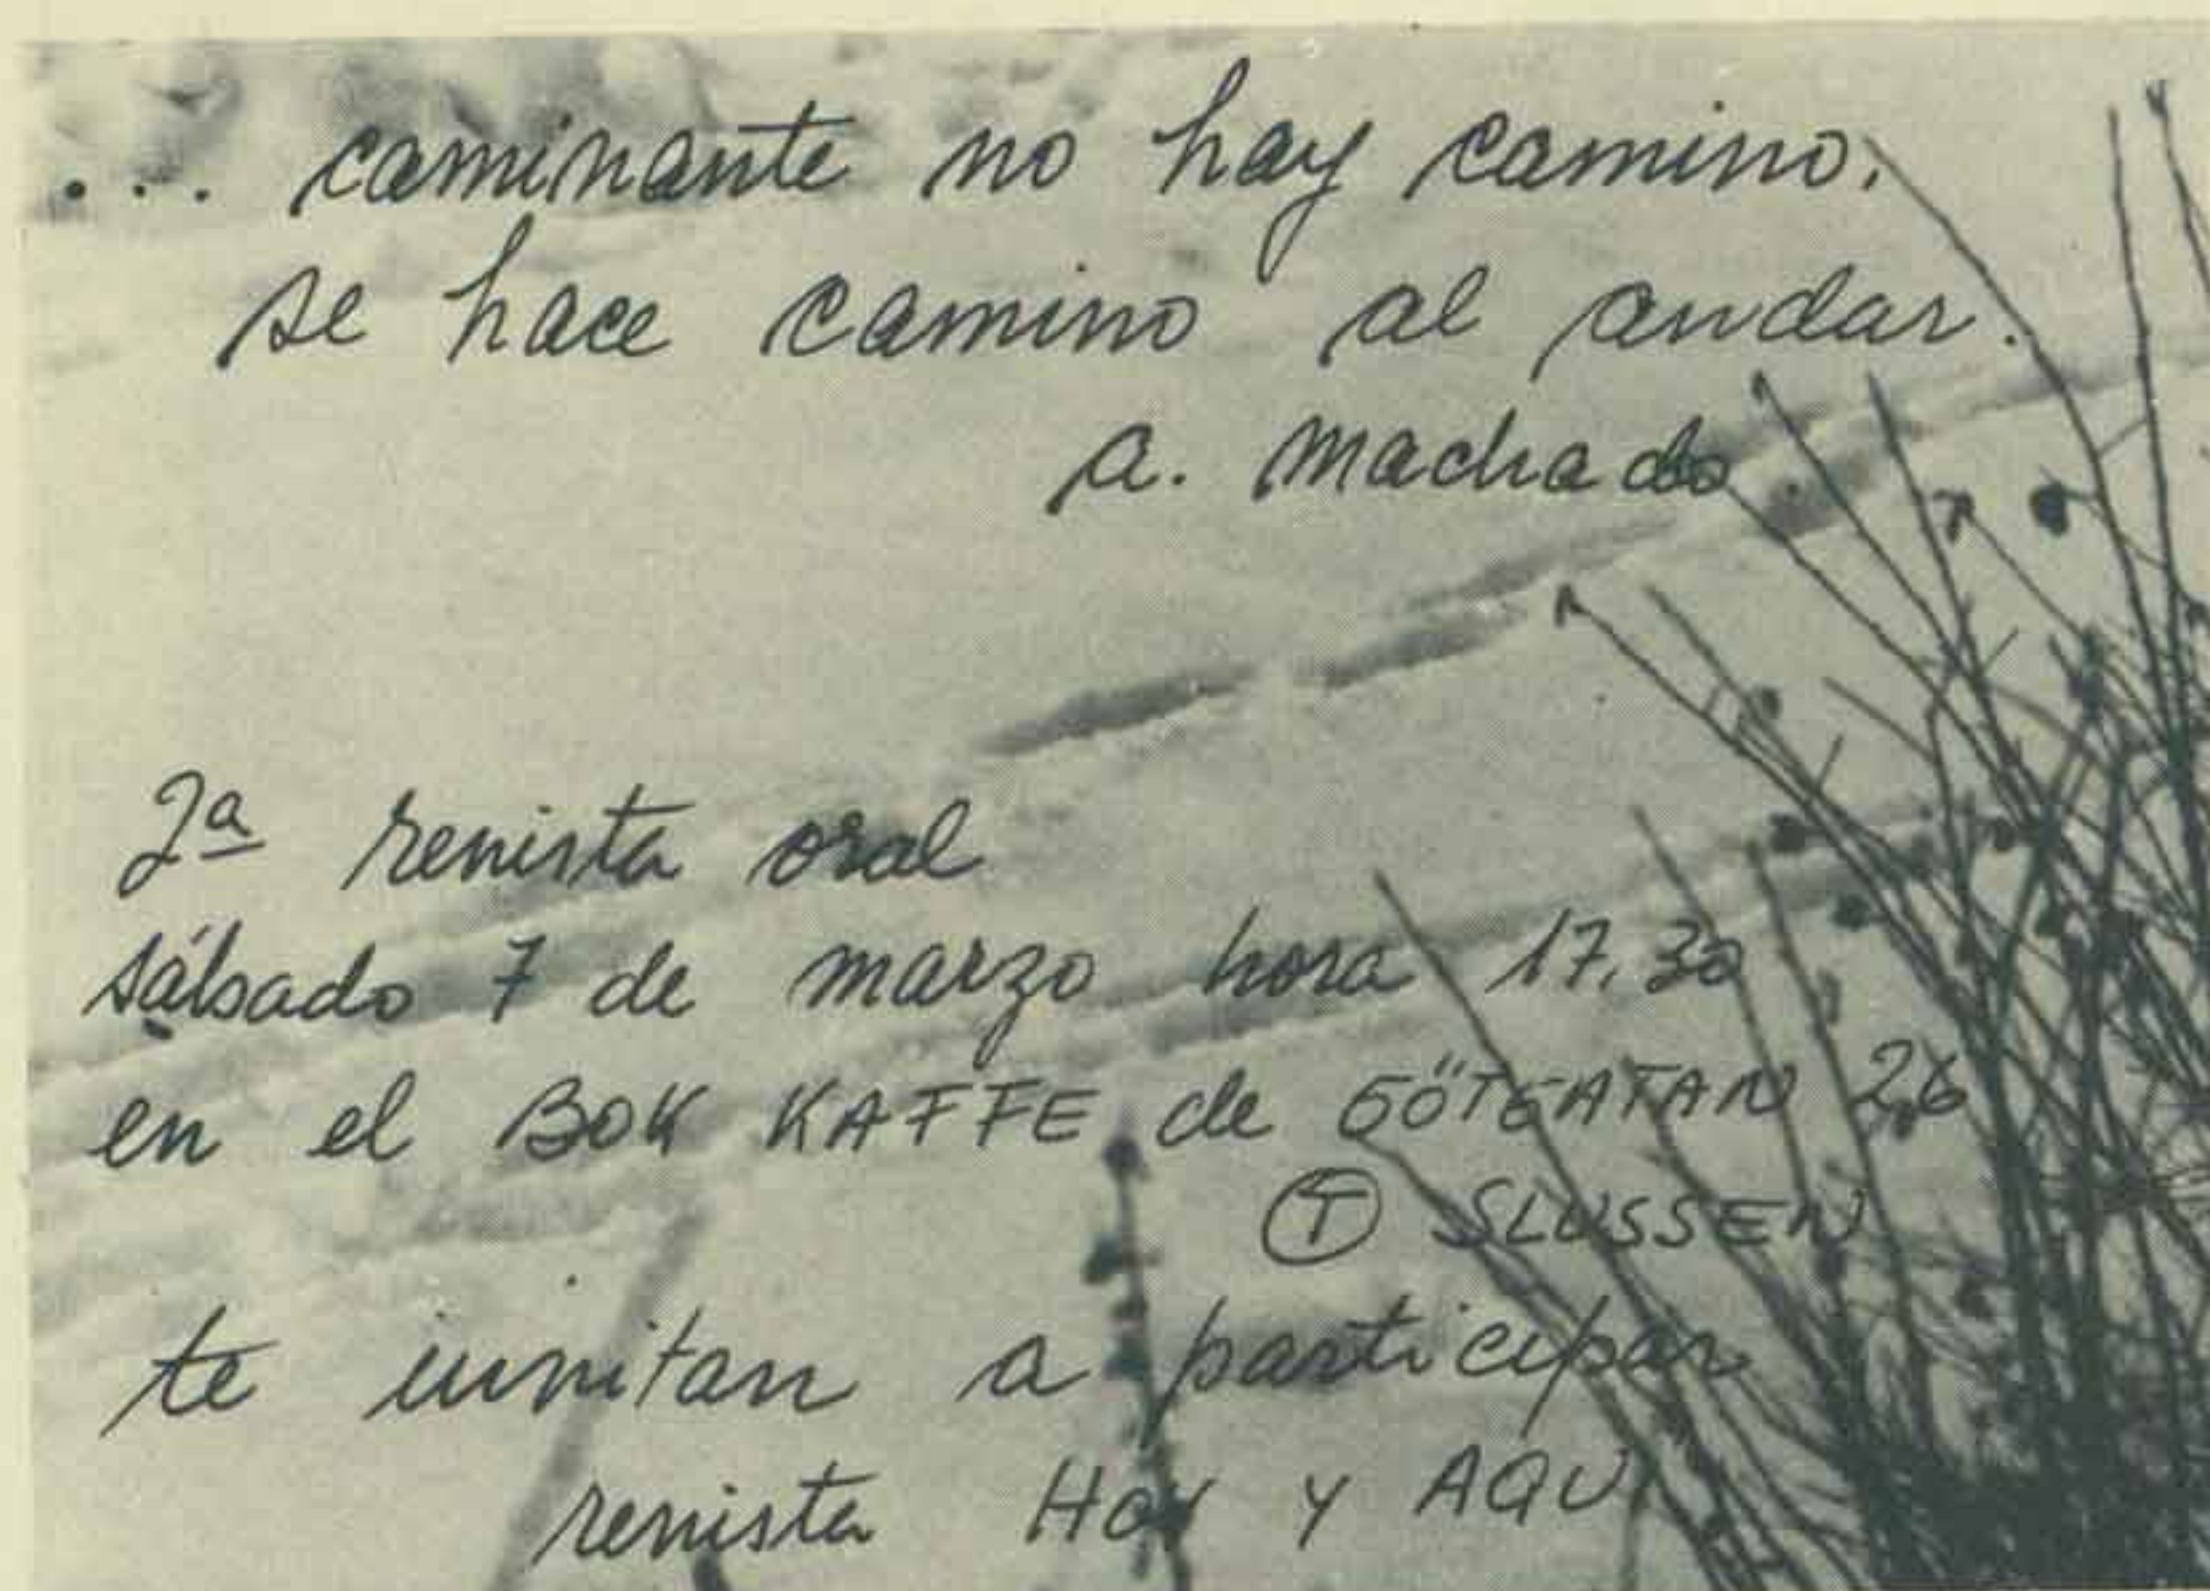 ... caminante no hay camino,
se hace camino al andar.
a. machado
2ª revista oral
sábado 7 de marzo hora 17,30
en el BOK KAFFE de GÖTGATAN 26
Ⓣ SLUSSEN
te invitan a participar
revista HOY y AQUI